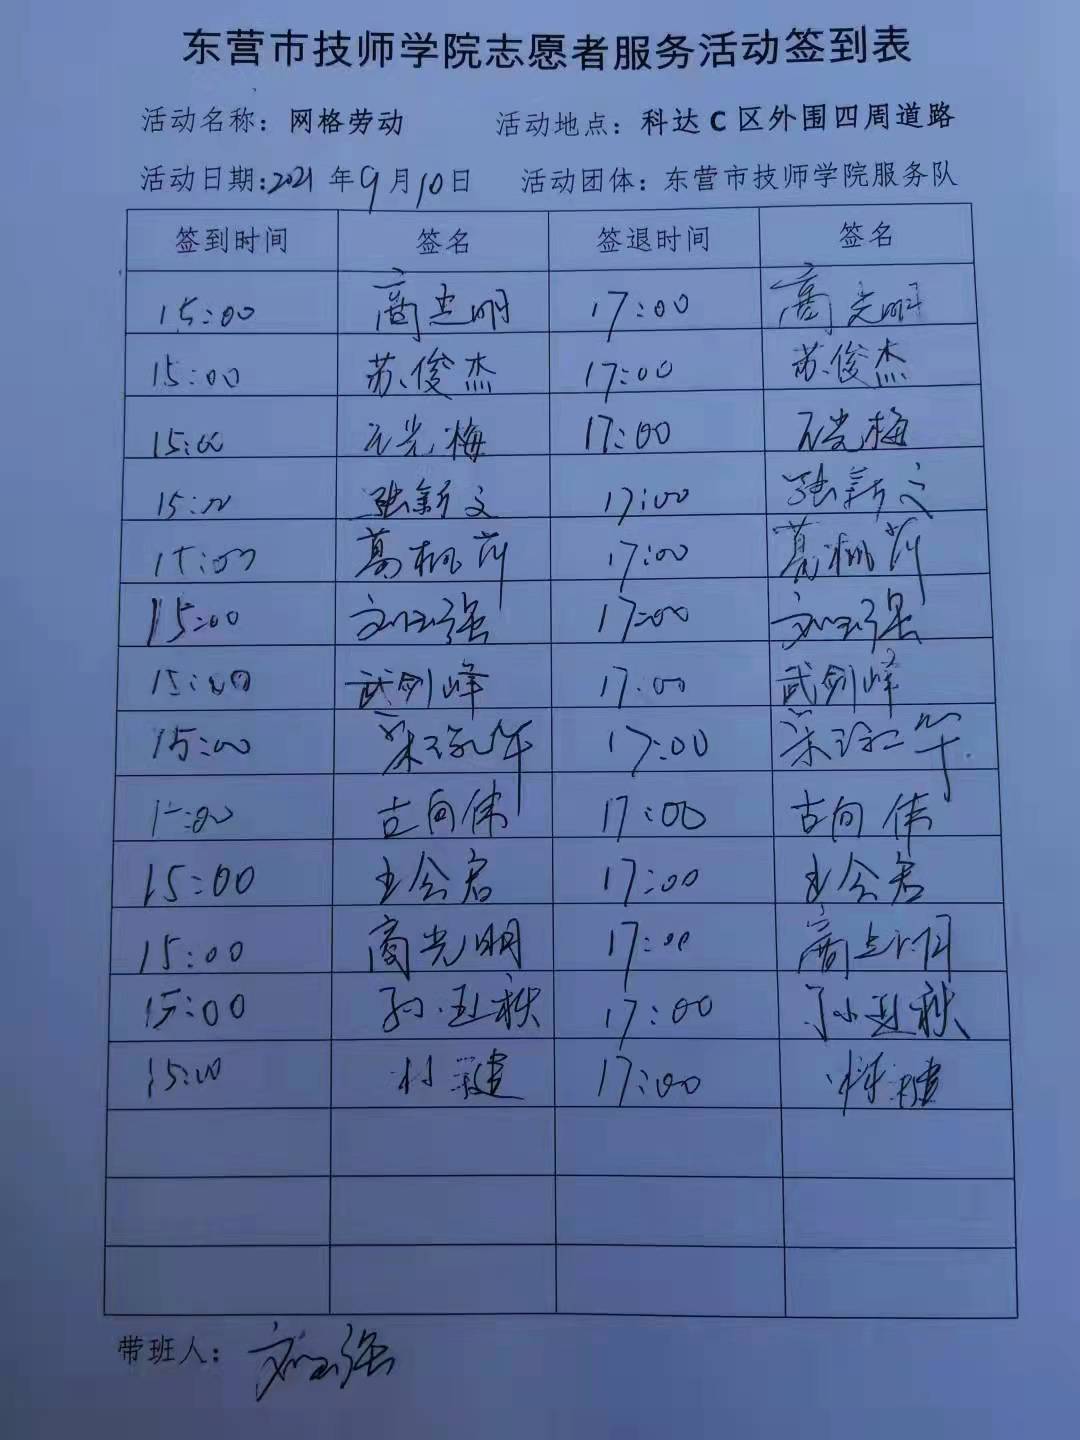 东营市技师学院志愿者服务活动签到表
活动名称：网格劳动 活动地点：科达C区外围四周道路
活动日期：2021年9月10日 活动团体：东营市技师学院服务队
签到时间 签名 签退时间 签名
15:00 商光明 17:00 商光明
15:00 苏俊杰 17:00 苏俊杰
15:00 光梅 17:00 光梅
15:00 张新文 17:00 张新文
15:00 葛桃 17:00 葛桃
15:00 刘玉强 17:00 刘玉强
15:00 武剑峰 17:00 武剑峰
15:00 17:00
15:00 古向伟 17:00 古向伟
15:00 王会君 17:00 王会君
15:00 商光明 17:00 商光明
15:00 孙亚秋 17:00 孙亚秋
15:00 17:00
带班人：刘玉强